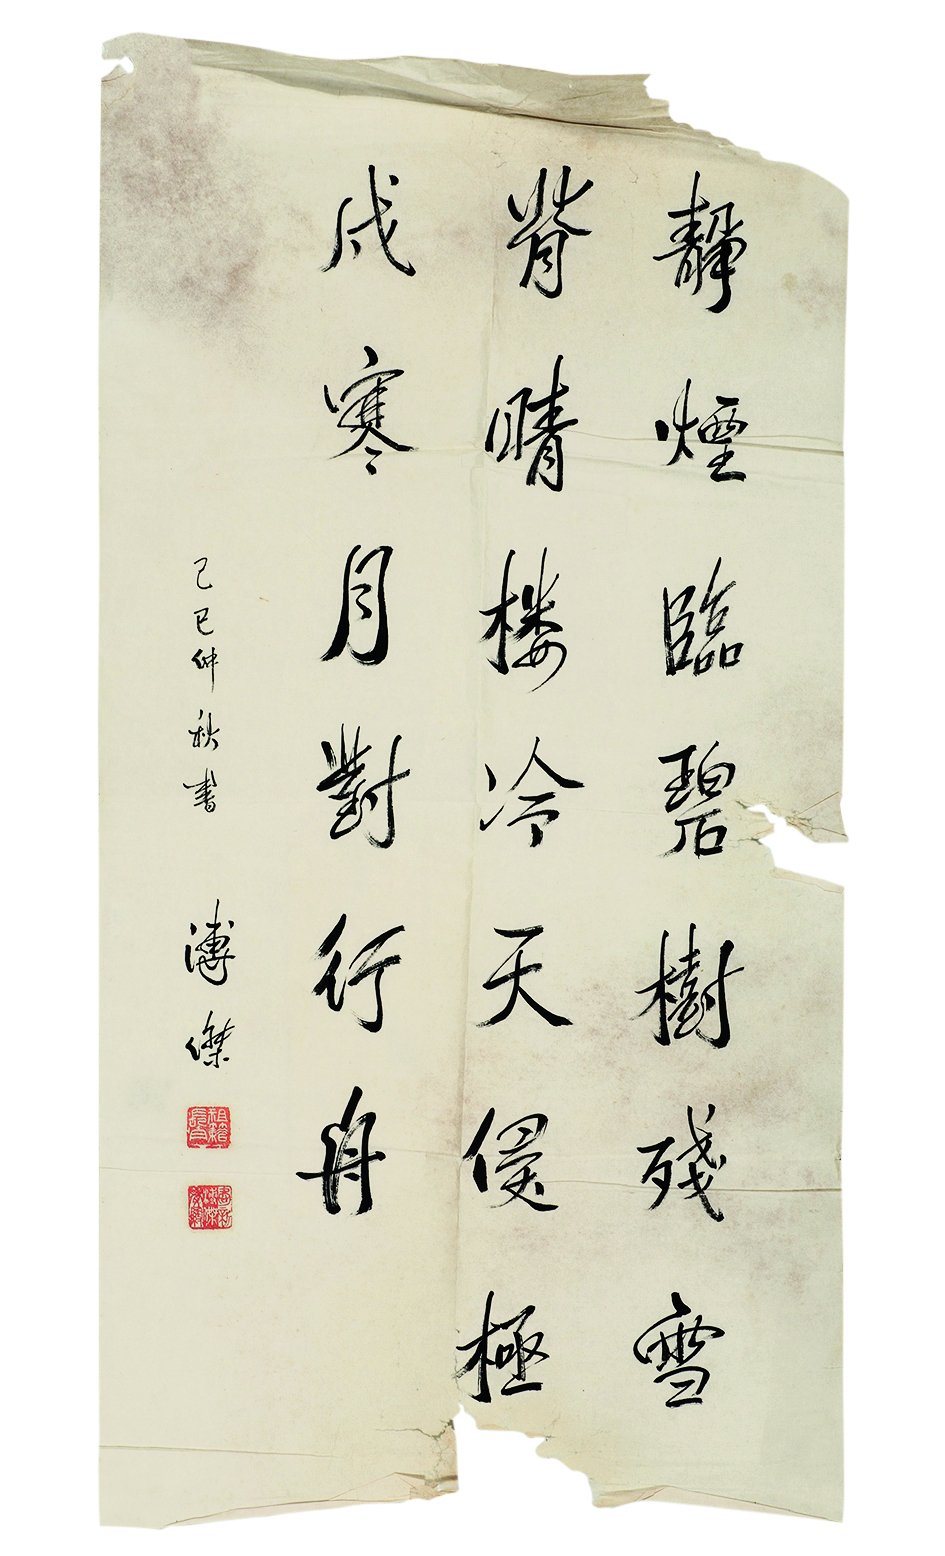 靜煙臨碧樹殘雪
背晴楼冷天侵極
戍寒月對行舟
己巳仲秋書 溥傑